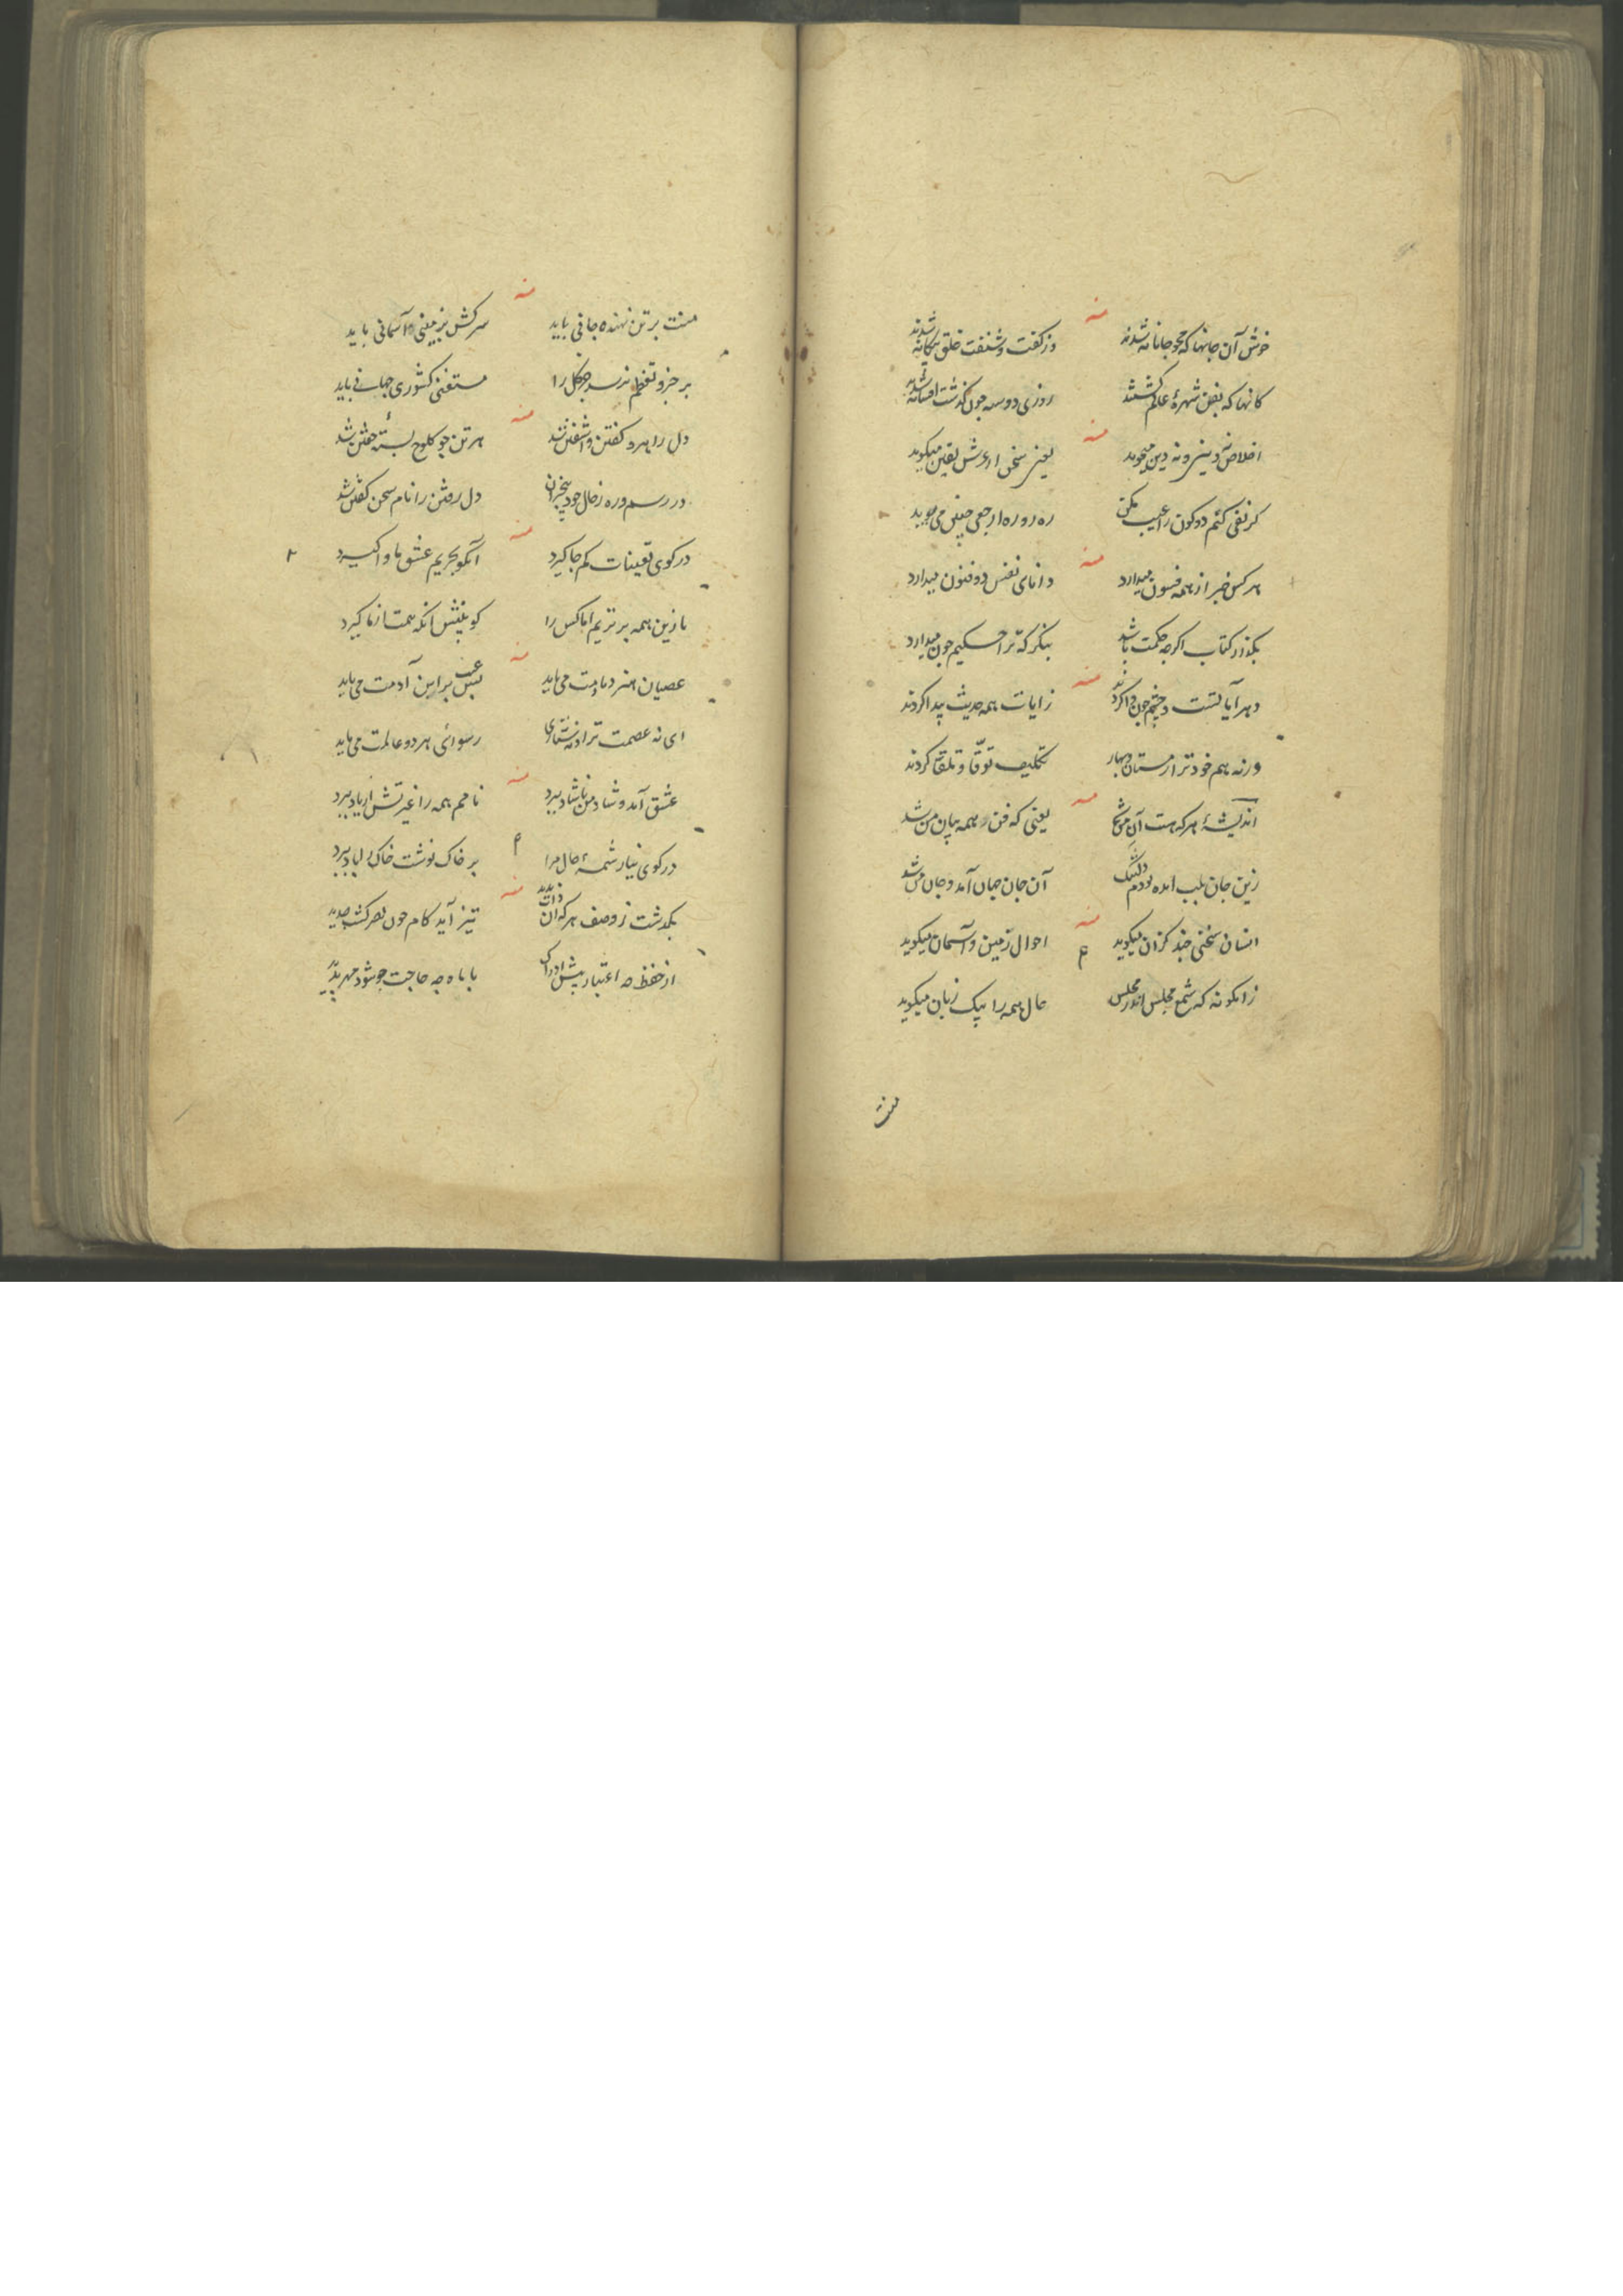 منه
خوش آن جانها که محو جانانه شدند وز گفت و شنفت خلق بیگانه شدند
کانها که بفن شهرهٔ عالم گشتند روزی دو سه چون گذشت افسانه شدند
منه
اخلاص نه دنیی و نه دین میجوید یعنی سخن از عرش یقین میگوید
کر نفی کنم دو کون را عیب مکن ره رو ره ارجعی چنین می پوید
منه
هر کس خبر از همه فسون میدارد دانای نفس ذوفنون میدارد
بگذار کتاب اکرچه حکمت باشد بنکر که ترا حکیم چون میدارد
منه
دهر آیاتست دو چشم چون وا کردند زایات همه حدیث پیدا کردند
ورنه بهم خود تر از مستان وبهار تکلیف توقا و تلقا کردند
منه
اندیشهٔ هر که هست آن من شد یعنی که فن همه بیان من شد
زین جان بلب امده بودم دلتنگ آن جان جهان آمد و جان من شد
منه
انسان سخنی چند کزان میکوید احوال زمین و آسمان میکوید
زانکونه که شمع مجلس اندر مجلس حال همه را بیک زبان میکوید
منت
منه
منت بر تن نهنده جانی باید سرکش بزمینی و آسمانی باید
بر جزو تغظم نرسد جز کل را مستغنی کشوری جهانی باید
منه
دل را بهره گفتن و اشفتن شد هر تن چو کلوخ بستهٔ خفتن شد
در رسم و ره زحال خود بیخبران دل رفتن را نام سخن گفتن شد
منه
در کوی تعینات کم جا کیرد آنکو بحریم عشق ماوا کیرد
ما زین همه برتریم اما کس را کو بینش انکه همت از ما کیرد
منه
عصیان هنر دمادمت می باید عیب بس بر این آدمت می باید
ای نه عصمت ترا دنه ستاری رسوائی هر دو عالمت می باید
منه
عشق آمد و شاد من ناشاد ببرد نامم همه را غیرتش از یاد ببرد
در کوی نیاز شمهٔ حال مرا بر خاک نوشت خاک را باد ببرد
منه
بکذشت ز وصف هر که آن ذات ندید تیز آید کام چون بصر کشت حدید
از حفظ چه اعتبار پیش ادراک با ماه چه حاجت چو شود مهر پدید